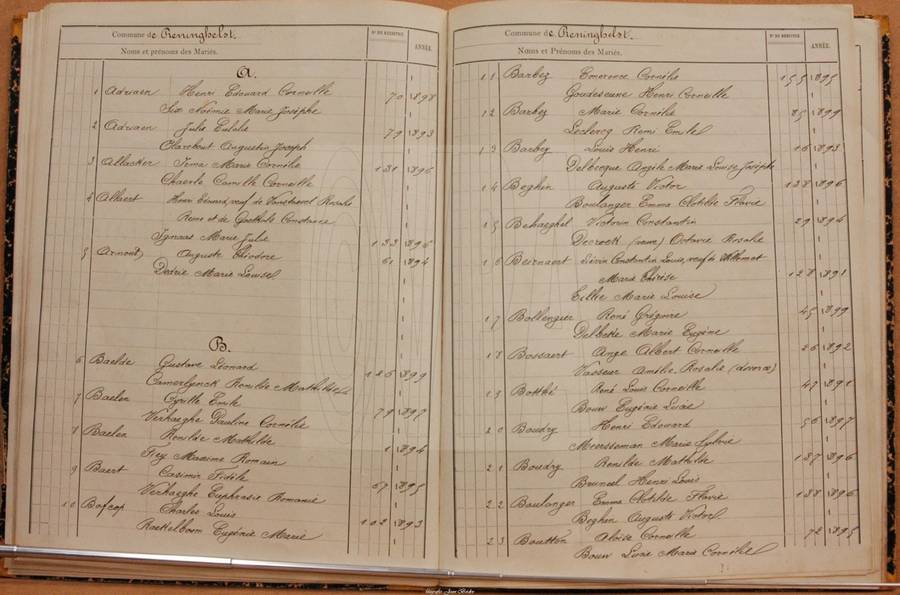 Commune de Reninghelst.
Nº DU REGISTRE
ANNÉE.
Noms et prénoms des Mariés.
A.
1 Adriaen Henri Edouard Corneille
Six Noémie Marie Josèphe 70 1898
2 Adriaen Julie Eulalie
Clarebout Augustin Joseph 79 1893
3 Allacker Irma Marie Cornélie
Chaerle Camille Corneille 131 1896
4 Allaert Henri Edouard, veuf de Rosalie
Reine et de Constance
Ignaas Marie Julie 133 1896
5 Arnout Auguste Théodore 61 1894
Dedrie Marie Louise
B.
6 Baelde Gustave Léonard
Camerlynck Romilde Mathilde 126 1899
7 Baelen Cyrille Emile
Verhaeghe Pauline Cornélie 79 1897
8 Baelen Romilde Mathilde
Fley Maxime Romain 1 1894
9 Baert Casimir Fidèle
Verhaeghe Euphrasie Romanie 67 1895
10 Bafcop Charles Louis
Raekelboom Eugénie Marie 102 1893
Commune de Reninghelst.
Nº DU REGISTRE
ANNÉE.
Noms et Prénoms des Mariés.
11 Barbez Emerence Cornélie 155 1895
Goudeseune Henri Corneille
12 Barbez Marie Cornélie 85 1899
Leclercq Remi Emile
13 Barbez Louis Henri 16 1893
Delbecque Angèle Marie Louise Josèphe
14 Beghin Auguste Victor 138 1896
Boulanger Emma Clotilde Flavie
15 Behaeghel Victorin Constantin 29 1894
Decrock (veuve) Octavie Rosalie
16 Beirnaert Liévin Constantin Louis, veuf de Willemot
Marie Thérèse 128 1891
Eillie Marie Louise
17 Bollengier René Grégoire 45 1899
Delbeke Marie Eugène
18 Bossaert Ange Albert Corneille 26 1892
Vasseur Amélie Rosalie (divorcé)
19 Botthé René Louis Corneille 47 1891
Boun Eugénie Lucie
20 Boudry Henri Edouard 56 1897
Meersseman Marie Sylvie
21 Boudry Romilde Mathilde 137 1896
Bruneel Henri Louis
22 Boulanger Emma Clotilde Flavie 138 1896
Beghin Auguste Victor
23 Boutton Aloïse Corneille 72 1895
Boun Lucie Marie Cornélie